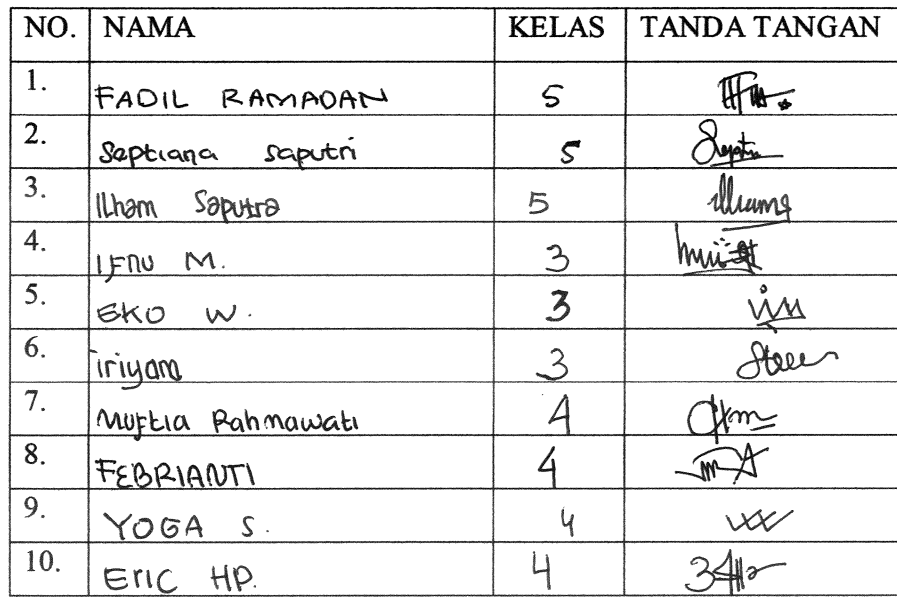 NO. NAMA KELAS TANDA TANGAN
1. FADIL RAMADAN 5
2. Septiana Saputri 5
3. Ilham Saputra 5
4. IFNU M. 3
5. EKO W. 3
6. iriyam 3
7. Muftia Rahmawati 4
8. FEBRIANTI 4
9. YOGA S. 4
10. Eric HP. 4